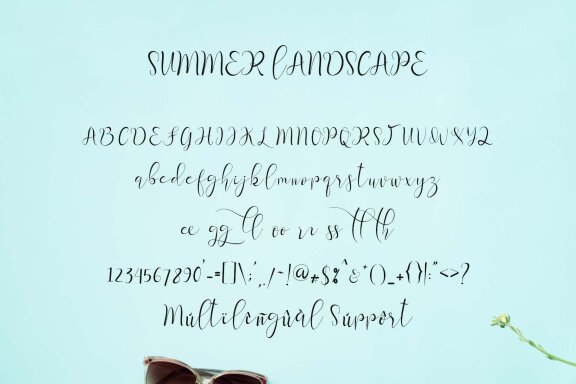 SUMMER LANDSCAPE
ABCDEFGHIJKLMNOPQRSTUVWXYZ
abcdefghijklmnopqrstuvwxyz
ee gg ll oo rr ss tt th
1234567890`-=[]\;',./~!@#$%^&*()_+{}|:"<>?
Múltilengûàl Súppört